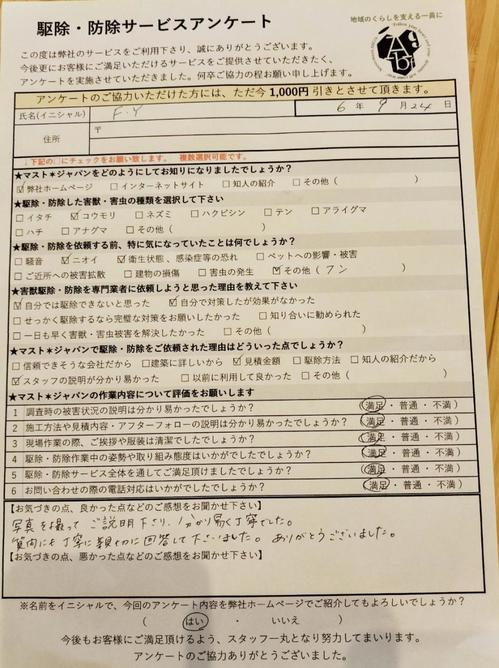 駆除・防除サービスアンケート
地域のくらしを支える一員に
この度は弊社のサービスをご利用下さり、誠にありがとうございます。
今後更にお客様にご満足いただけるサービスをご提供させていただきたく、
アンケートを実施させていただきました。何卒ご協力の程お願い申し上げます。
アンケートのご協力いただけた方には、ただ今 1,000円 引きとさせて頂きます。
氏名(イニシャル) F.Y 6 年 9 月 24 日
住所 〒
↓下記の□にチェックをお願い致します。 複数選択可能です。
★マスト*ジャパンをどのようにしてお知りになりましたでしょうか?
☑弊社ホームページ □インターネットサイト □知人の紹介 □その他( )
★駆除・防除した害獣・害虫の種類を選択して下さい
□イタチ ☑コウモリ □ネズミ □ハクビシン □テン □アライグマ
□ハチ □アナグマ □その他( )
★駆除・防除を依頼する前、特に気になっていたことは何でしょうか?
□騒音 ☑ニオイ ☑衛生状態、感染症等の恐れ □ペットへの影響・被害
□ご近所への被害拡散 □建物の損傷 □害虫の発生 ☑その他(フン )
★害獣駆除・防除を専門業者に依頼しようと思った理由を教えて下さい
☑自分では駆除できないと思った ☑自分で対策したが効果がなかった
□せっかく駆除するなら完璧な対策をお願いしたかった □知り合いに勧められた
□一日も早く害獣・害虫被害を解決したかった □その他( )
★マスト*ジャパンで駆除・防除をご依頼された理由はどういった点でしょうか?
□信頼できそうな会社だから □建築に詳しいから ☑見積金額 □駆除方法 □知人の紹介だから
☑スタッフの説明が分かり易かった □以前に利用して良かった □その他( )
★マスト*ジャパンの作業内容について評価をお願いします
1 調査時の被害状況の説明は分かり易かったでしょうか? (満足・普通・不満)
2 施工方法や見積内容・アフターフォローの説明は分かり易かったでしょうか? (満足・普通・不満)
3 現場作業の際、ご挨拶や服装は清潔でしたでしょうか? (満足・普通・不満)
4 駆除・防除作業中の姿勢や取り組み態度はいかがでしたでしょうか? (満足・普通・不満)
5 駆除・防除サービス全体を通してご満足頂けましたでしょうか? (満足・普通・不満)
6 お問い合わせの際の電話対応はいかがでしたでしょうか? (満足・普通・不満)
【お気づきの点、良かった点などのご感想をお聞かせ下さい】
写真を撮って ご説明下さり、分かり易く丁寧でした。
質問にも丁寧に親切に回答して下さいました。ありがとうございました。
【お気づきの点、悪かった点などのご感想をお聞かせ下さい】
※名前をイニシャルで、今回のアンケート内容を弊社ホームページでご紹介してもよろしいでしょうか?
( はい ・ いいえ )
今後もお客様にご満足頂けるよう、スタッフ一丸となり努力してまいります。
アンケートのご協力ありがとうございました。